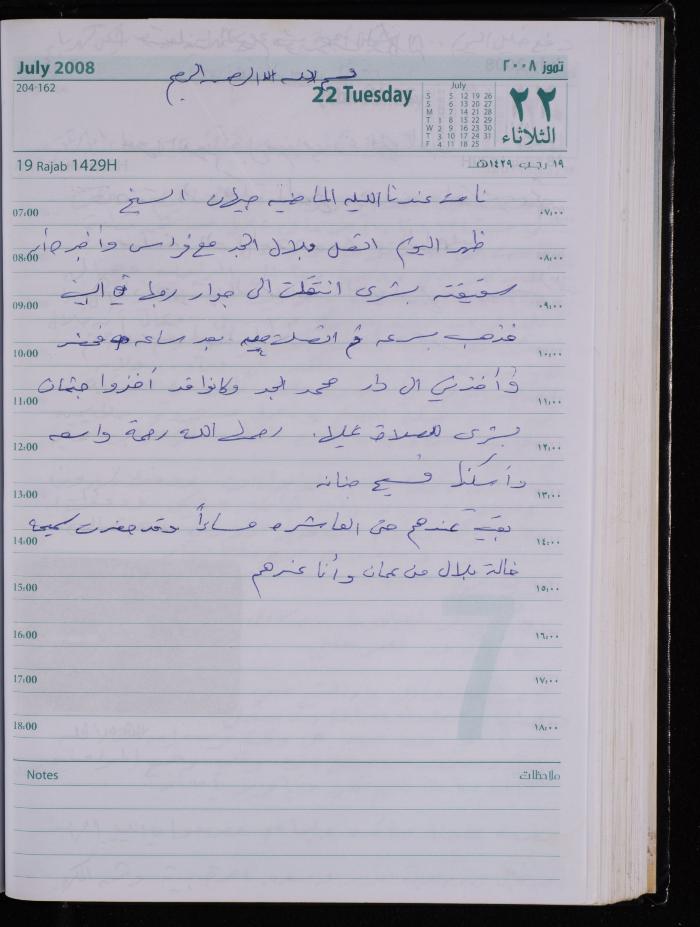 July 2008
تموز ٢٠٠٨
بسم الله الرحمن الرحيم
204-162
22 Tuesday
July
S 5 12 19 26
S 6 13 20 27
M 7 14 21 28
T 1 8 15 22 29
W 2 9 16 23 30
T 3 10 17 24 31
F 4 11 18 25
٢٢
الثلاثاء
19 Rajab 1429H
١٩ رجب ١٤٢٩هـ
نامت عندنا الليلة الماضيه جيلان الشيخ
07:00 ٠٧:٠٠
ظهر اليوم اتصل بلال الجد مع فراس وأخبره أن
08:00 ٠٨:٠٠
شقيقته بشرى انتقلت الى جوار ربها في البيت
09:00 ٠٩:٠٠
فذهب بسرعه ثم اتصلت به بعد ساعه فحضر
10:00 ١٠:٠٠
وأخذني الى دار محمد الجد وكانوا قد أخذوا جثمان
11:00 ١١:٠٠
بشرى للصلاة عليها. رحمها الله رحمة واسعه
12:00 ١٢:٠٠
وأسكنها فسيح جنانه
13:00 ١٣:٠٠
بقيت عندهم حتى العاشره مساءاً وقد حضرت سميحة
14:00 ١٤:٠٠
خالة بلال من عمان وأنا عندهم
15:00 ١٥:٠٠
16:00 ١٦:٠٠
17:00 ١٧:٠٠
18:00 ١٨:٠٠
7
Notes
ملاحظات